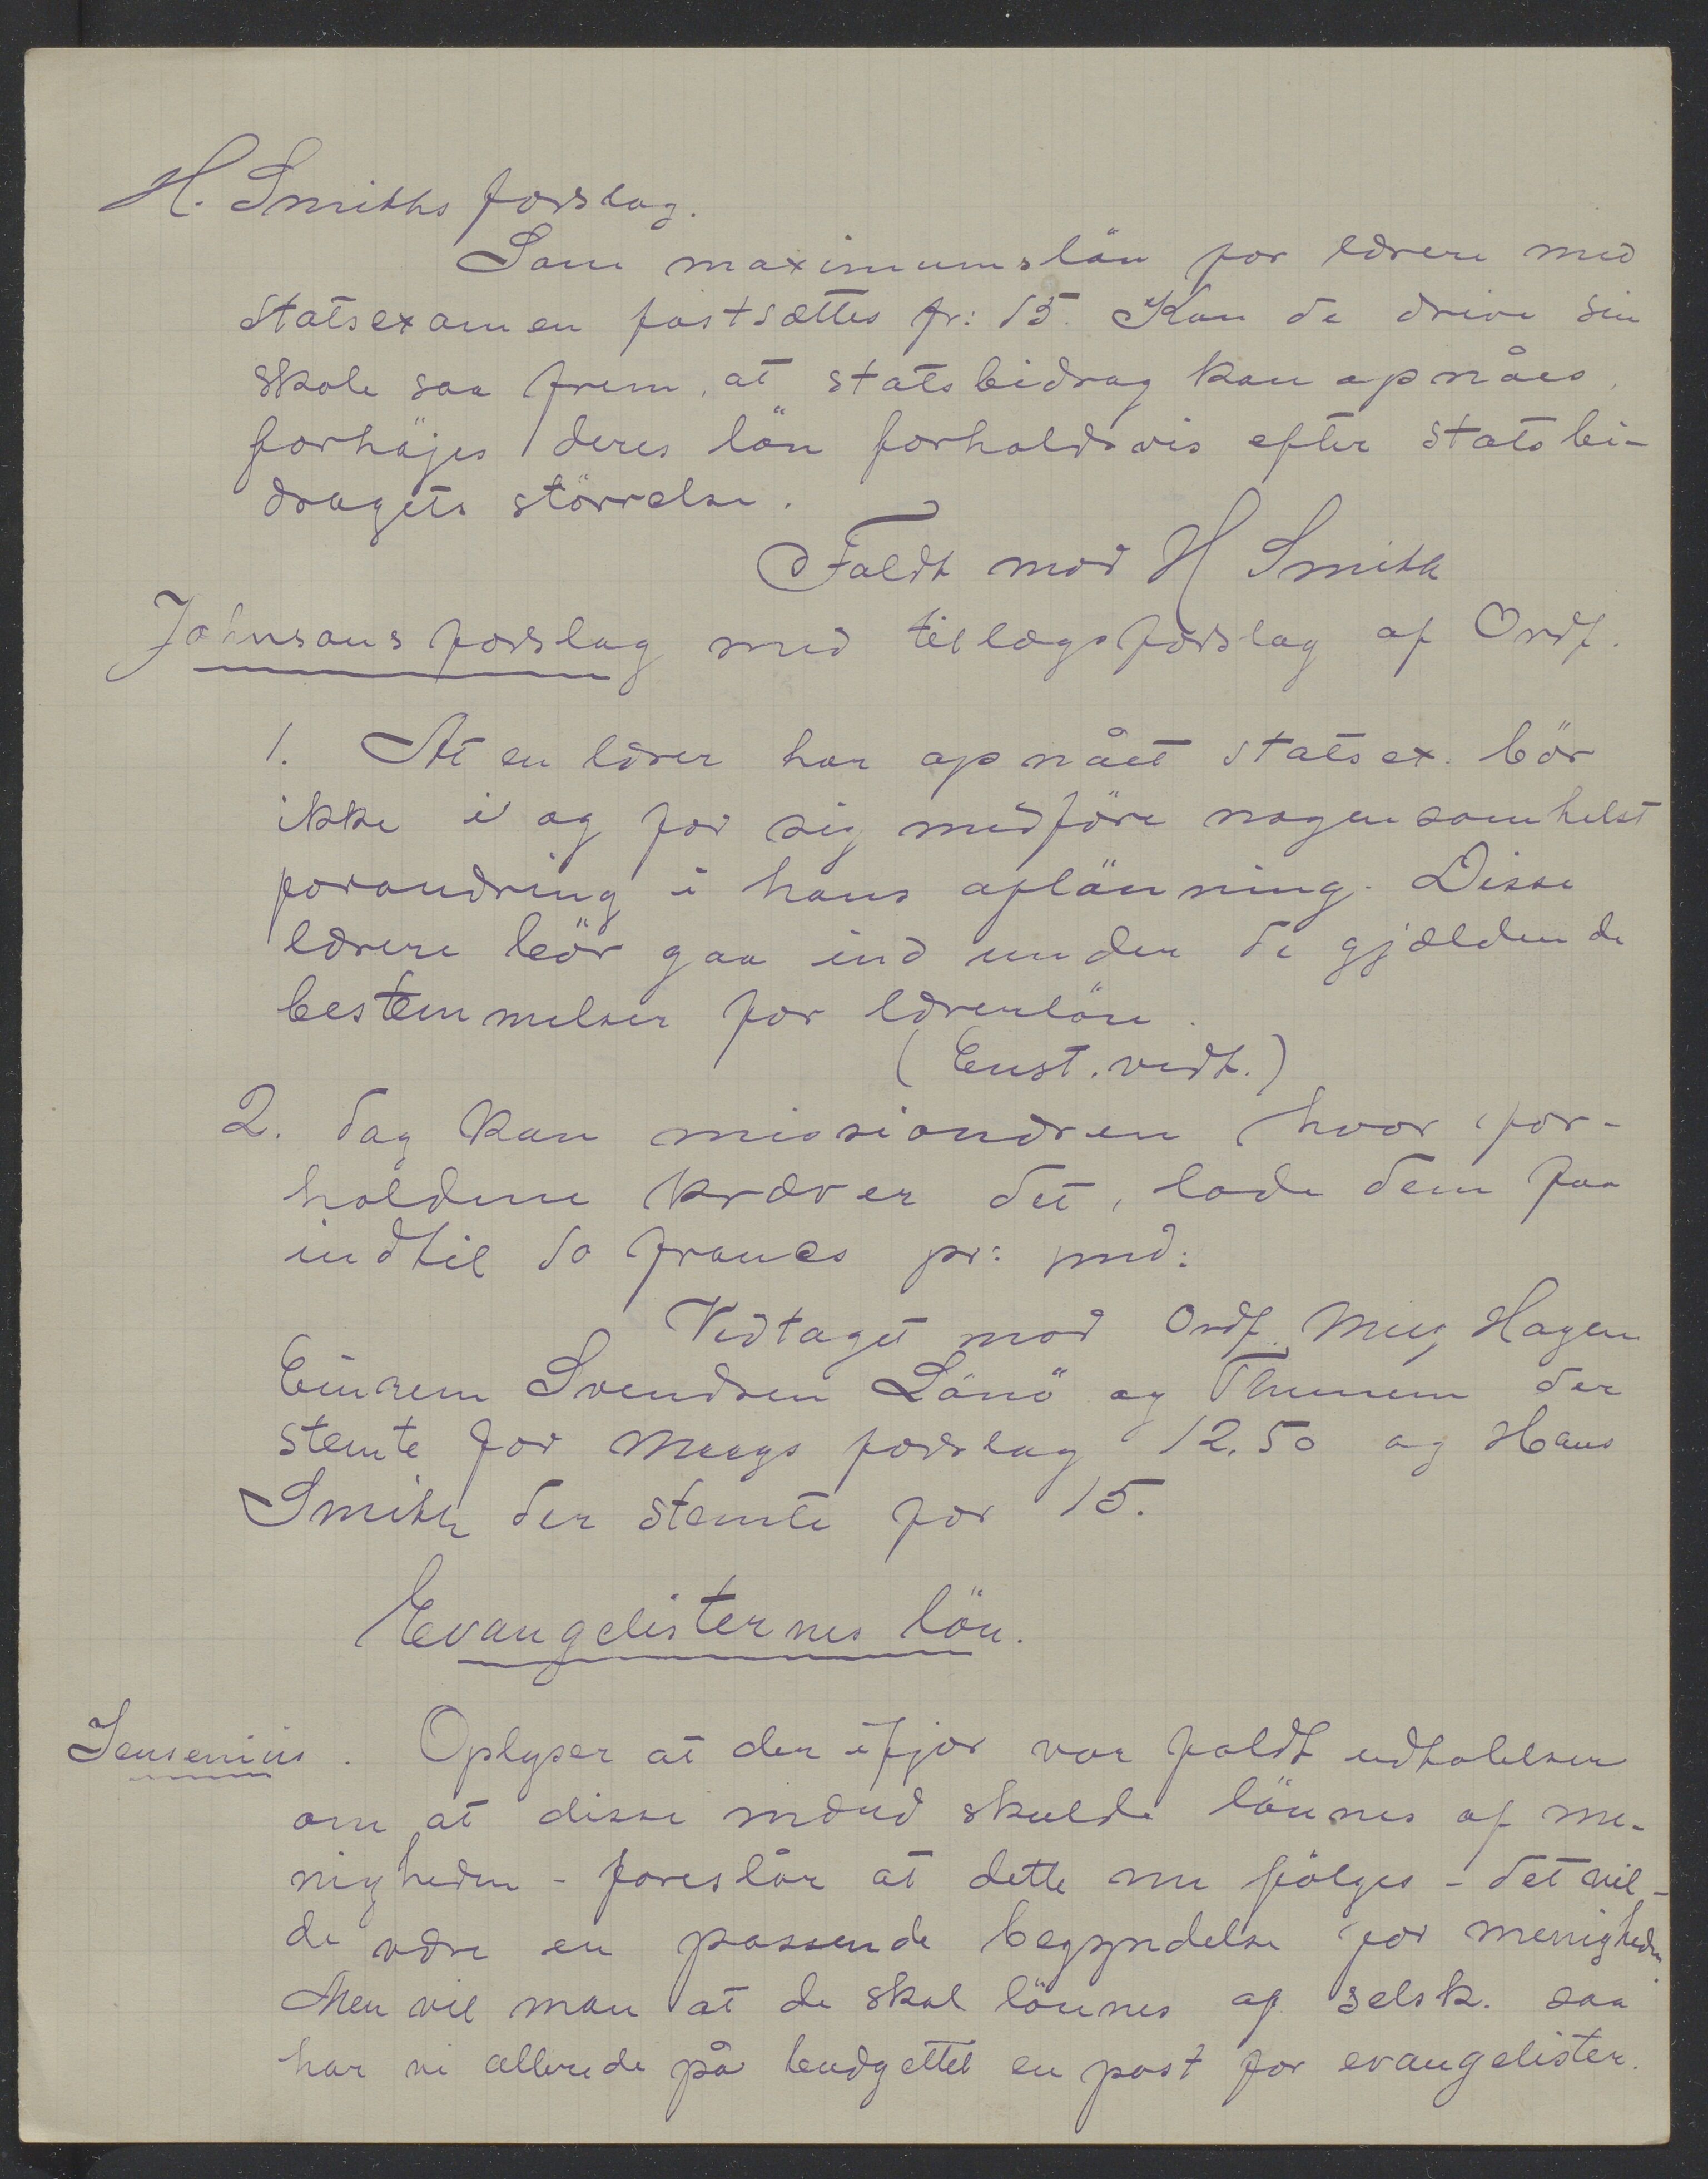 H. Smiths forslag.
Som maximumslön for lærere med
statsexamen fastsættes fr: 15. Kan de drive sin
skole saa frem, at statsbidrag kan opnåes,
forhöjes deres lön forholdsvis efter statsbi-
dragets störrelse.
Faldt mod H Smith
Johnsons forslag med tillægsforslag af Ordf.
1. At en lærer har opnået statsex. bör
ikke i og for sig medföre nogensomhelst
forandring i hans aflönning. Disse
lærere bör gaa ind under de gjældende
bestemmelser for lærerlön.
(Enst. vedt.)
2. dog kan missionæren hvor for-
holdene kræver det, lade dem faa
indtil 10 francs pr: md:
Vedtaget mod Ordf. Meeg Hagen
Einrem Svendsen Lönö og Thunem der
stemte for Meegs forslag 12.50 og Hans
Smith der stemte for 15.
Evangelisternes lön.
Jensenius. Oplyser at der ifjor var faldt udtalelser
om at disse mænd skulde lönnes af me-
nigheden - foreslår at dette nu fölges - det vil-
de være en passende begyndelse for menigheden.
Men vil man at de skal lönnes af selsk. saa
har vi allerede på budgettet en post for evangelister.